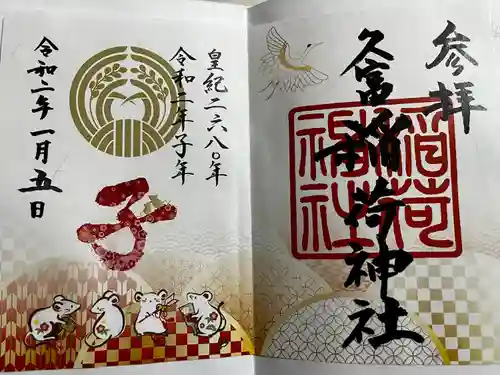 参拝
久富稲荷神社
皇紀二六八〇年
令和二年子年
子
令和二年一月五日